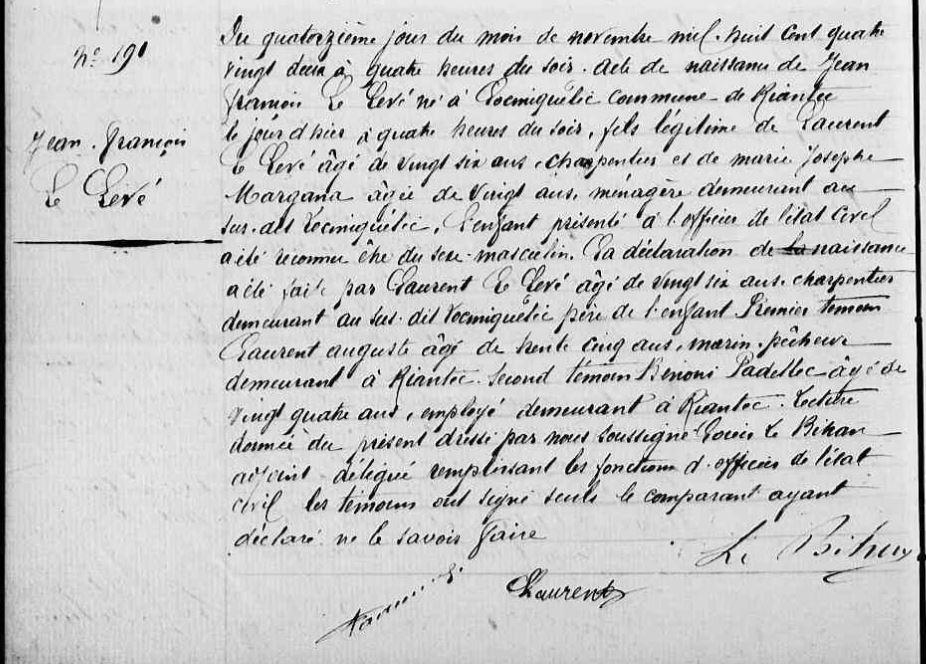 N° 191
Jean François
Le Levé
Du quatorzième jour du mois de novembre mil huit cent quatre
vingt deux à quatre heures du soir. Acte de naissance de Jean
François Le Levé né à Locmiquélic commune de Riantec
le jour d'hier à quatre heures du soir, fils légitime de Laurent
Le Levé âgé de vingt six ans, charpentier et de marie Josèphe
Margana âgée de vingt ans, ménagère demeurant au
sus-dit Locmiquélic, L'enfant présenté à l'officier de l'état civil
a été reconnu être du sexe masculin. La déclaration de la naissance
a été faite par Laurent Le Levé âgé de vingt six ans, charpentier
demeurant au sus-dit Locmiquélic père de l'enfant Premier témoin
Laurent auguste âgé de trente cinq ans, marin pêcheur
demeurant à Riantec. Second témoin Bénoni Padellec âgé de
vingt quatre ans, employé demeurant à Riantec. Lecture
donnée du présent dressé par nous soussigné Louis Le Bihan
adjoint délégué remplissant les fonctions d'officier de l'état
civil les témoins ont signé seuls le comparant ayant
déclaré ne le savoir faire
Le Bihan
Laurent